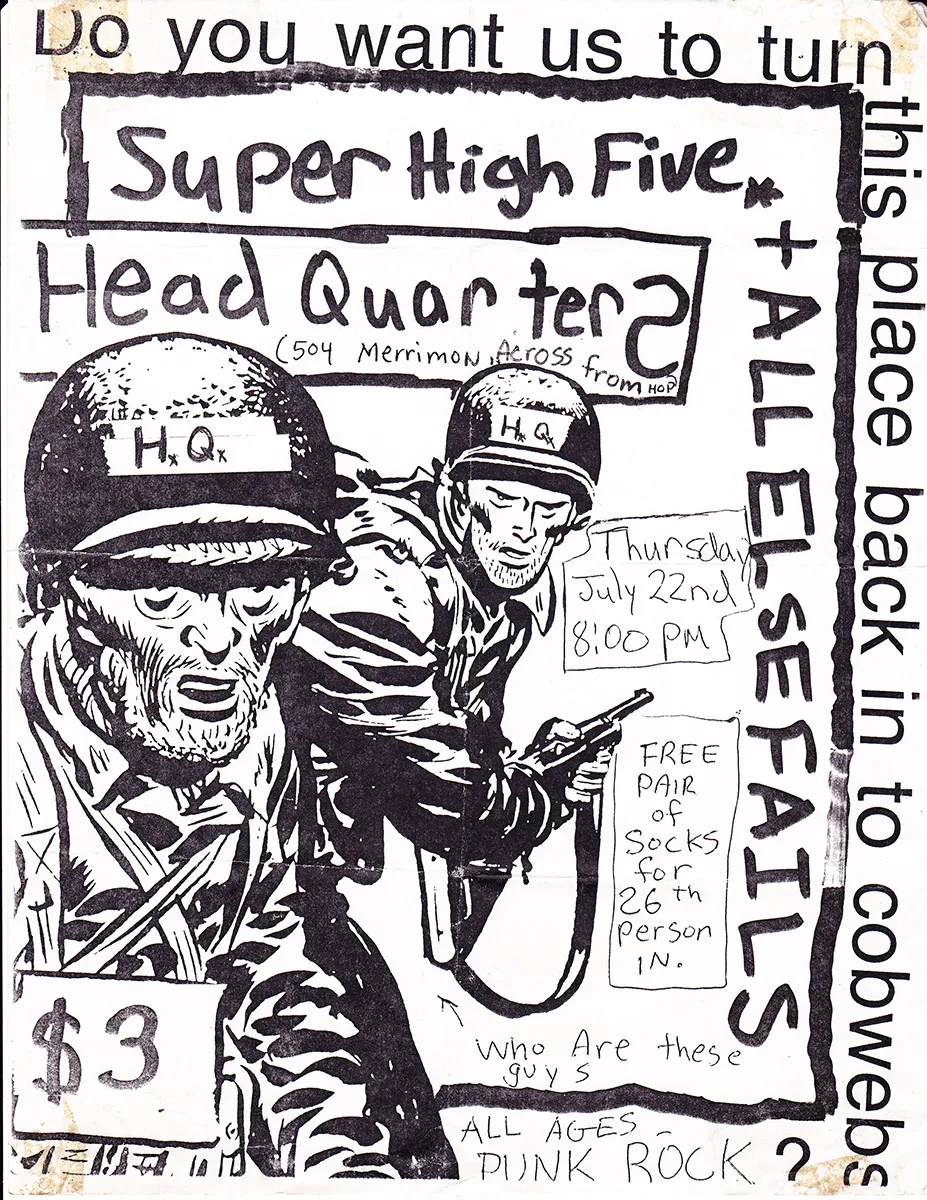 Do you want us to turn
this place back in to cobwebs
?
Super High Five*
+ ALL ELSE FAILS
Head QuarterS
(504 Merrimon, Across from HOP
H.Q.
H.Q.
Thursday
July 22nd
8:00 PM
FREE
PAIR
of
Socks
for
26th
person
IN.
$3
Who Are these
guys
ALL AGES -
PUNK ROCK